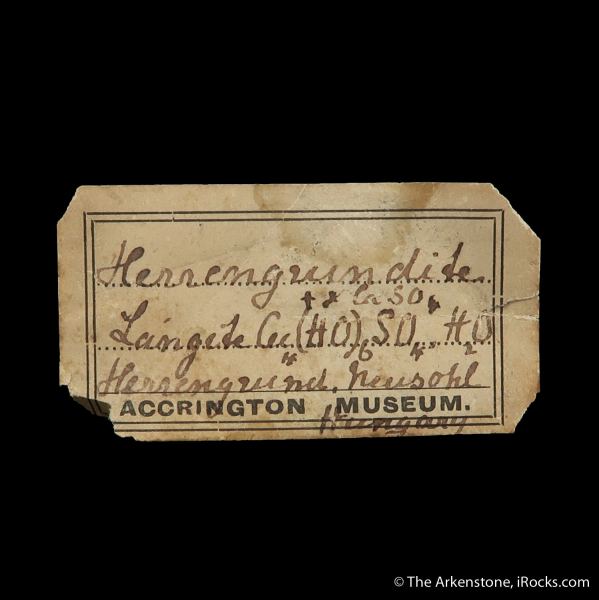 Herrengrundite
+ x Ca SO4
Langite Cu4(HO)6 SO4. H2O
Herrengrund, Neusohl
ACCRINGTON MUSEUM.
Hungary
© The Arkenstone, iRocks.com